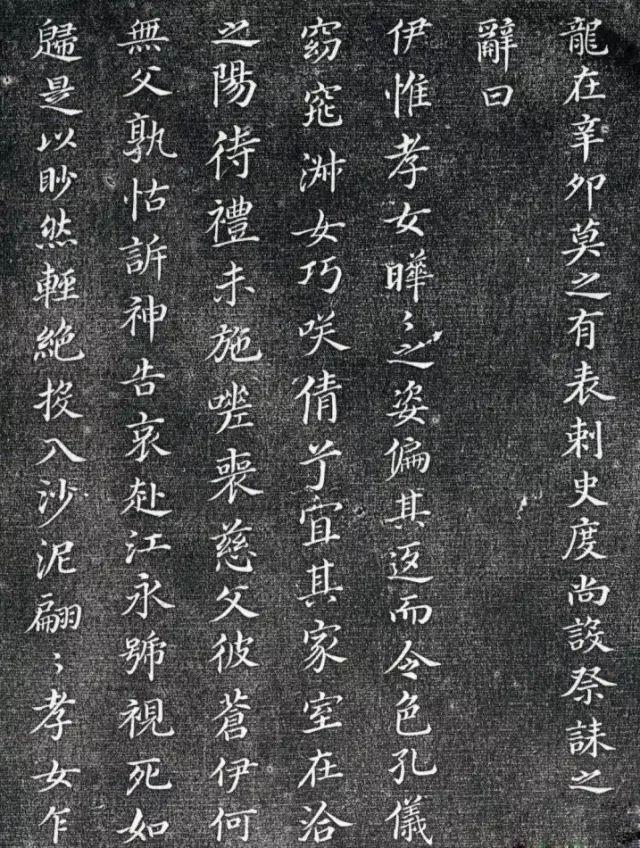 龍在辛卯莫之有表刺史度尚設祭誄之
辭曰
伊惟孝女曄〻之姿偏其返而令色孔儀
窈窕淑女巧咲倩兮宜其家室在洽
之陽待禮未施嗟喪慈父彼蒼伊何
無父孰怙訴神告哀赴江永號視死如
歸是以眇然輕絕投入沙泥翩〻孝女乍